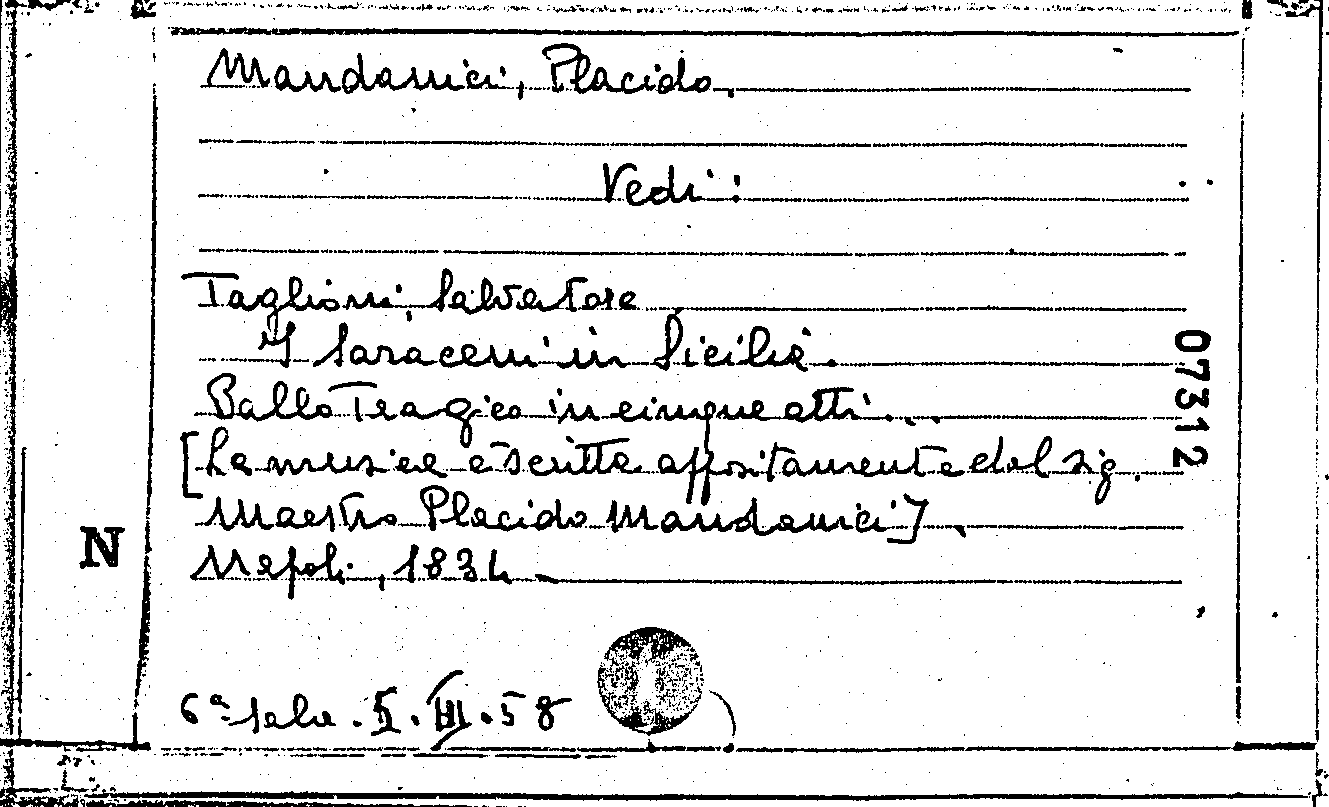 Mandanici, Placido.
Vedi:
Taglioni, Salvatore
I Saraceni in Sicilia.
Ballo Tragico in cinque atti...
[La musica è scritta appositamente dal sig.
Maestro Placido Mandanici].
Napoli, 1834
6ª sala. . III. 58
07312
N